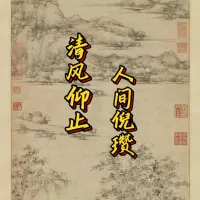 清风仰止
人间倪瓒